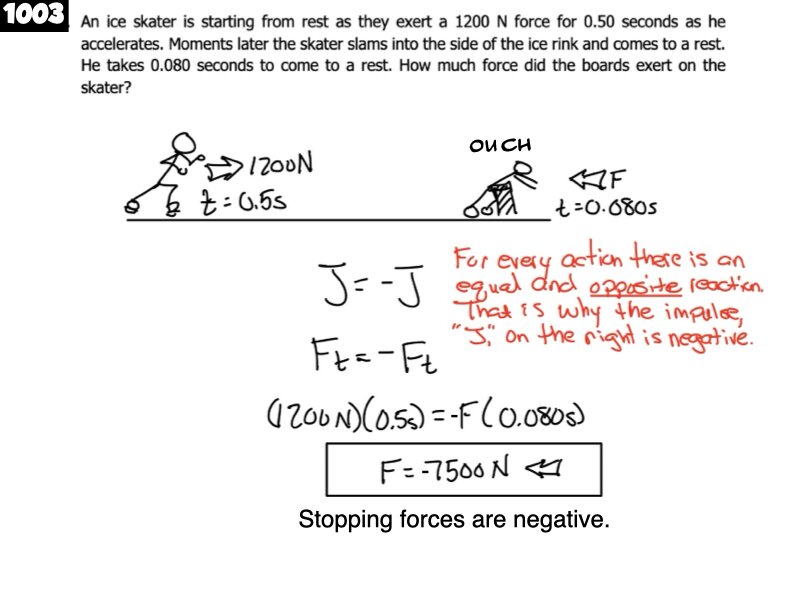 1003
An ice skater is starting from rest as they exert a 1200 N force for 0.50 seconds as he
accelerates. Moments later the skater slams into the side of the ice rink and comes to a rest.
He takes 0.080 seconds to come to a rest. How much force did the boards exert on the
skater?
OUCH
⇨ 1200N
t = 0.5s
⇦ F
t = 0.080s
J = -J
For every action there is an
equal and opposite reaction.
That is why the impulse,
"J," on the right is negative.
Ft = -Ft
(1200N)(0.5s) = -F(0.080s)
F = -7500 N ⇦
Stopping forces are negative.